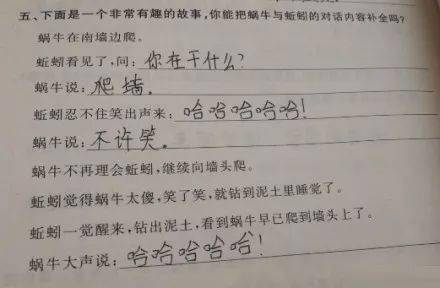 五、下面是一个非常有趣的故事,你能把蜗牛与蚯蚓的对话内容补全吗?
蜗牛在南墙边爬。
蚯蚓看见了,问:你在干什么?
蜗牛说:爬墙.
蚯蚓忍不住笑出声来:哈哈哈哈哈!
蜗牛说:不许笑.
蜗牛不再理会蚯蚓,继续向墙头爬。
蚯蚓觉得蜗牛太傻,笑了笑,就钻到泥土里睡觉了。
蚯蚓一觉醒来,钻出泥土,看到蜗牛早已爬到墙头上了。
蜗牛大声说:哈哈哈哈哈!